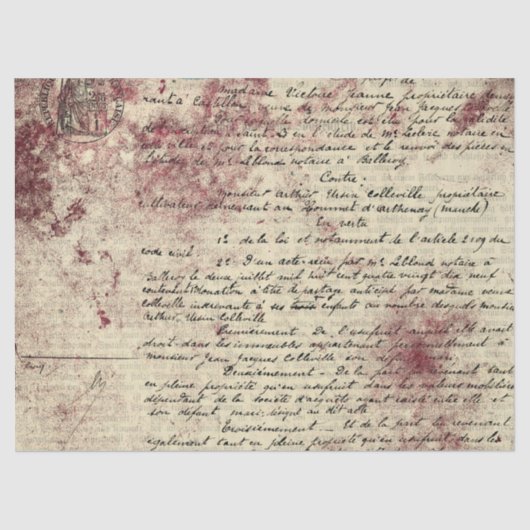 madame Victoire Jeanne propriétaire demeu
rant à Castillon, veuve de monsieur Jean Jacques Colleville
pour laquelle domicile est élu pour la validité
de l'inscription à Saint Lô en l'étude de Me Leclerc notaire en
cette ville et pour la correspondance et le renvoi des pièces en
l'étude de Me Leblond notaire à Balleroy
Contre:
monsieur Arthur Ursin Colleville propriétaire
cultivateur demeurant au Hommet d'Arthenay (manche)
En vertu
1º de la loi et notamment de l'article 2109 du
code civil
2º D'un acte reçu par Me Leblond notaire à
Balleroy le deux juillet mil huit cent quatre vingt dix neuf
contenant Donation à titre de partage anticipé par madame veuve
Colleville à ses enfants au nombre desquels monsieur
Arthur Ursin Colleville
Premièrement - De l'usufruit auquel elle avait
droit dans les immeubles appartenant personnellement à
monsieur Jean Jacques Colleville son défunt mari
Deuxièmement - De la part lui revenant tant
en pleine propriété qu'en usufruit dans les valeurs mobilières
dépendant de la société d'acquêts ayant existé entre elle et
son défunt mari audit acte
Troisièmement - Et de la part lui revenant
également tant en pleine propriété qu'en usufruit dans les